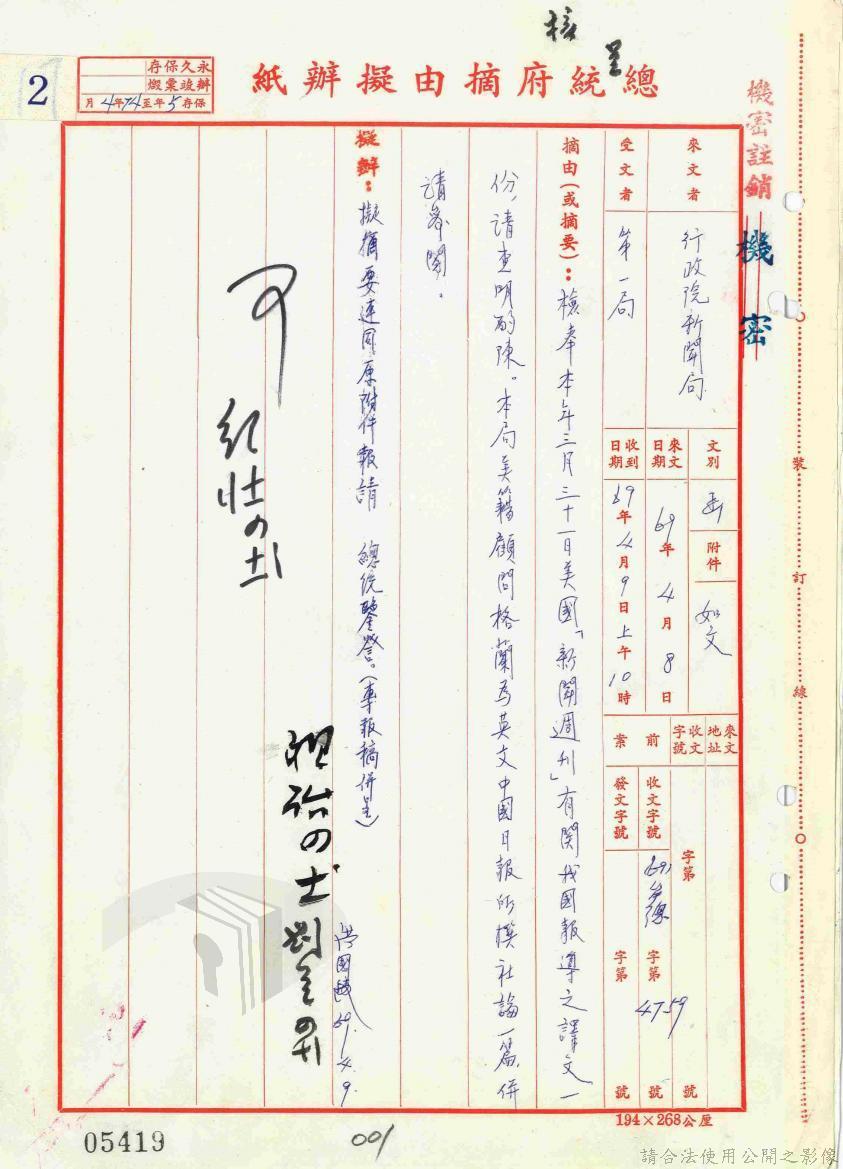 核
呈
總統府摘由擬辦紙
永久保存
辦竣彙燬
保存5年至74年4月
2
機密註銷
機密
來文者
行政院新聞局
文別
函
附件
如文
來文地址
收文字號
字第
號
受文者
第一局
來文日期
69年4月8日
收到日期
69年4月9日上午10時
前案
收文字號
字第
4759
號
發文字號
字第
號
摘由(或摘要):檢奉本年三月三十一日美國「新聞週刊」有關我國報導之譯文一
份,請查明酌陳。本局美籍顧問格蘭為英文中國日報所撰社論一篇,併
請參閱。
擬辦:擬摘要連同原附件報請 總統鑒詧。(專報稿併呈)
69.4.9.
裝訂線
194×268公厘
05419
001
請合法使用公開之影像